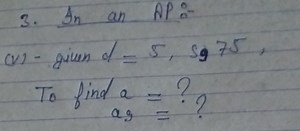 3. In an AP:-
(v)- given d = 5, S9 75,
To find a = ?
a9 = ?